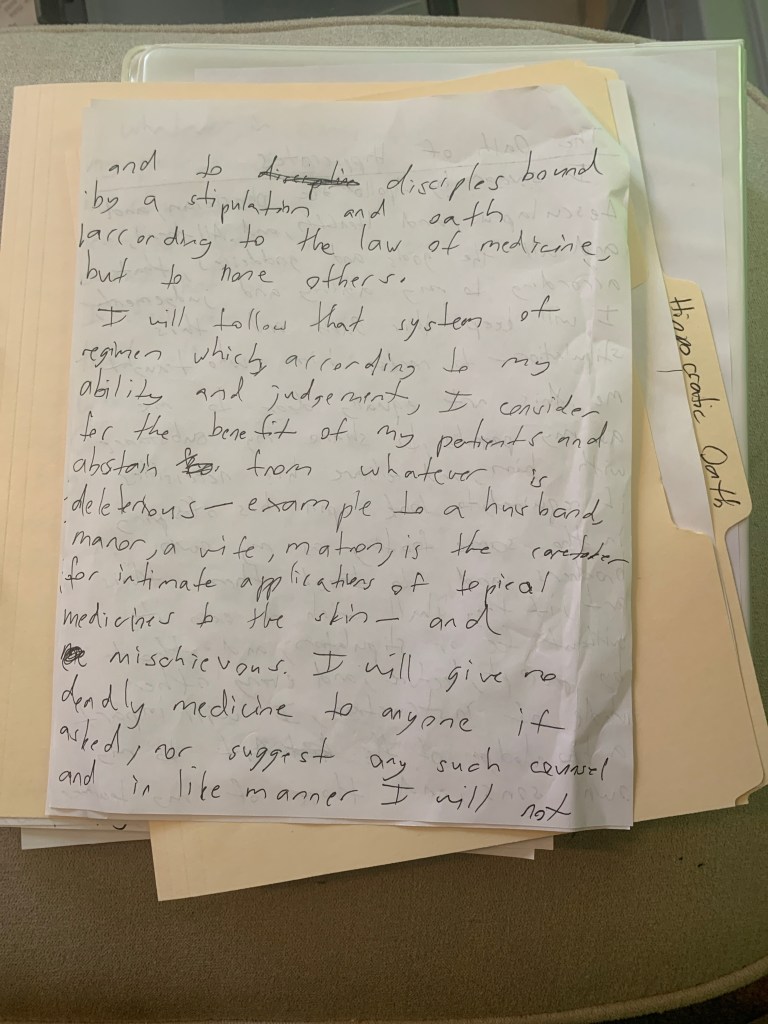 and to disciples bound
by a stipulation and oath
according to the law of medicine,
but to none others.
I will follow that system of
regimen which, according to my
ability and judgement, I consider
for the benefit of my patients and
abstain from whatever is
deleterious — example to a husband,
manor, a wife, matron, is the caretaker
for intimate applications of topical
medicines to the skin — and
mischievous. I will give no
deadly medicine to anyone if
asked, nor suggest any such counsel
and in like manner I will not
Hippocratic Oath